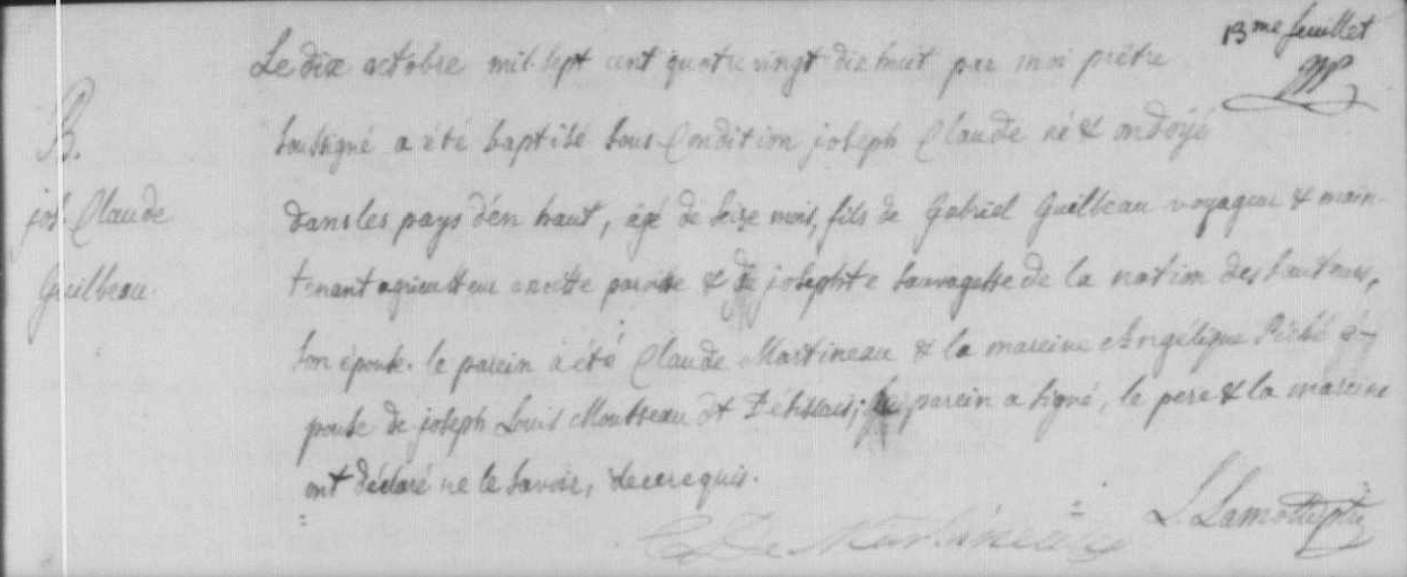 13me feuillet
Le dix octobre mil sept cent quatre vingt dix huit par moi prêtre
B.
soussigné a été baptisé sous Condition joseph Claude né & ondoyé
jos. Claude
dans les pays d'en haut, âgé de seize mois, fils de Gabriel Guilbeau voyageur & main-
Guilbeau.
tenant agriculteur en cette paroisse & de josephte sauvagesse de la nation des sauteurs,
son épouse. le parein a été Claude Martineau & la mareine Angélique é-
pouse de joseph Louis Mousseau dt ; le parein a signé, le pere & la mareine
ont déclaré ne le savoir, de ce requis.
C De Martineau
L Lamotte ptre